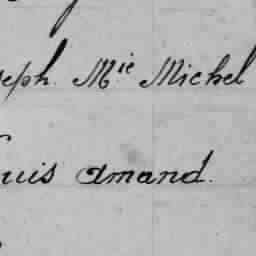 seph. Mie Michel
uis Amand.